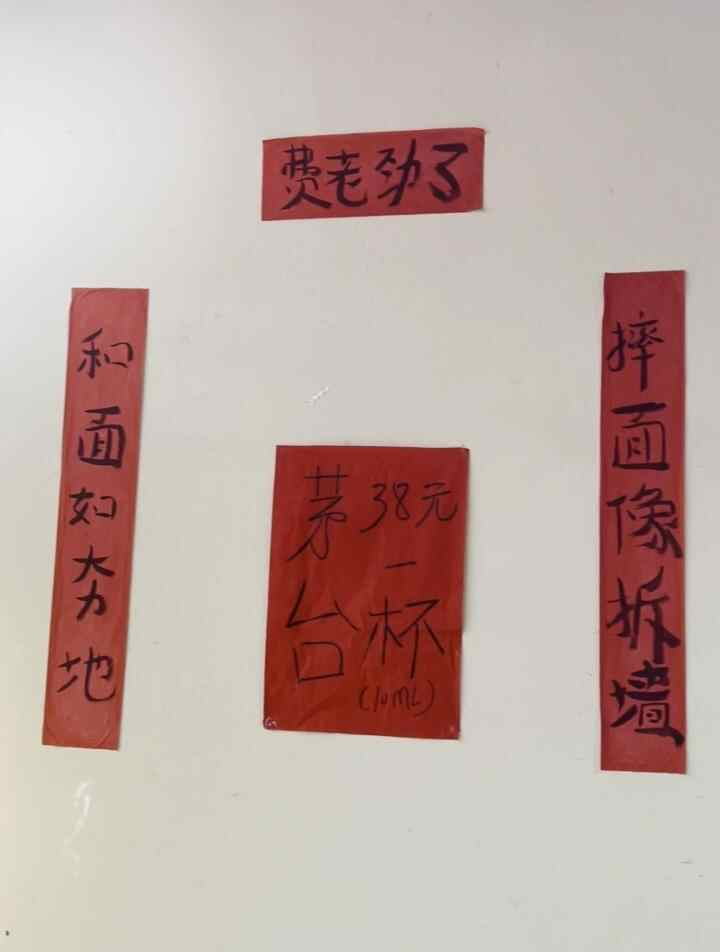 费老劲了
摔面像拆墙
和面如夯地
茅台
38元
一杯
(10mL)